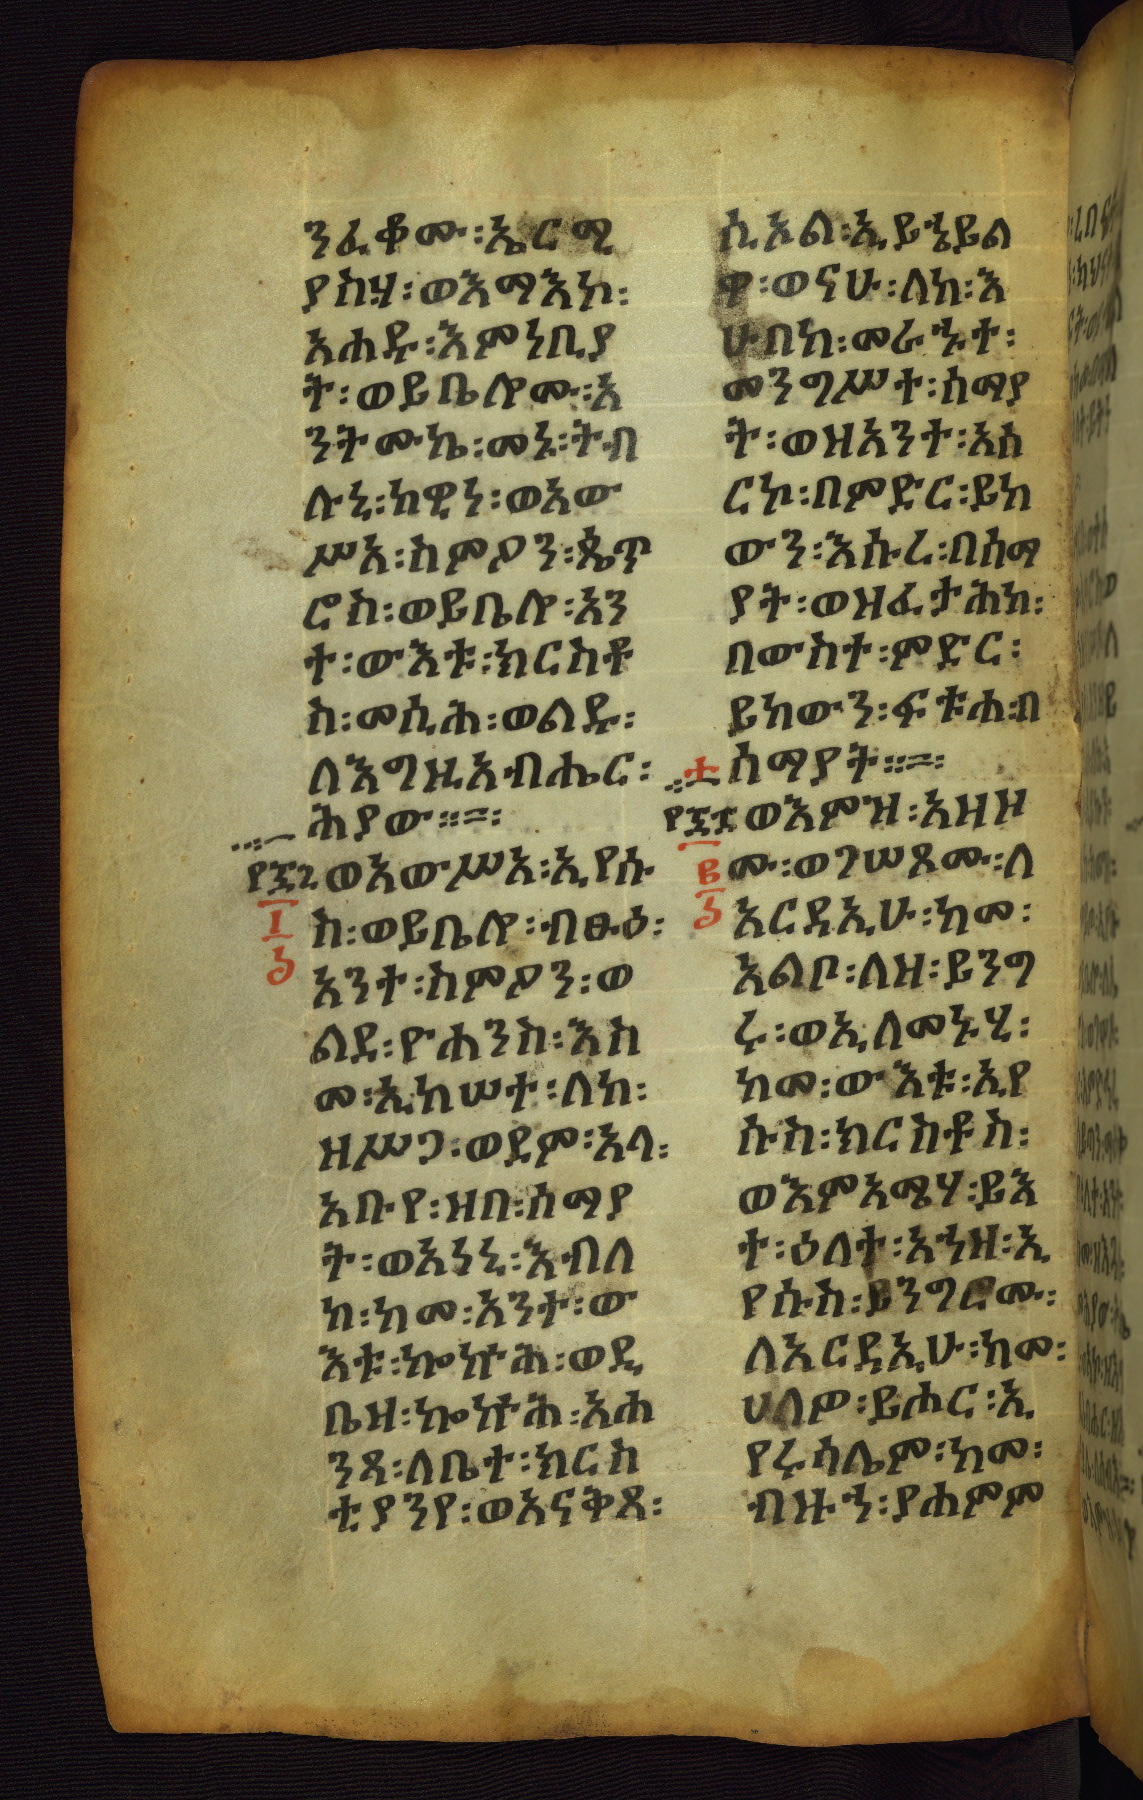 ንፈቆሙ፡ኤርሚ
ያስሃ፡ወእማእኮ፡
አሐዱ፡እምነቢያ
ት፡ወይቤሎሙ፡አ
ንትሙኬ፡መኑ፡ትብ
ሉኒ፡ከዊነ፡ወአው
ሥአ፡ስምዖን፡ጴጥ
ሮስ፡ወይቤሎ፡አን
ተ፡ውእቱ፡ክርስቶ
ስ፡መሲሕ፡ወልዱ፡
ለእግዚአብሔር፡
ሕያው።
ወአውሥአ፡ኢየሱ
ስ፡ወይቤሎ፡ብፁዕ፡
አንተ፡ስምዖን፡ወ
ልደ፡ዮሐንስ፡እስ
መ፡ኢከሠተ፡ለከ፡
ዘሥጋ፡ወደም፡አላ፡
አቡየ፡ዘበ፡ሰማያ
ት፡ወአነኒ፡እብለ
ከ፡ከመ፡አንተ፡ው
እቱ፡ኰኵሕ፡ወዲ
ቤዝ፡ኰኵሕ፡አሐ
ንጻ፡ለቤተ፡ክርስ
ቲያንየ፡ወአናቅጸ፡
ሲኦል፡ኢይኄይል
ዋ፡ወናሁ፡ለከ፡እ
ሁበከ፡መራኁተ፡
መንግሥተ፡ሰማያ
ት፡ወዝአንተ፡አሰ
ርኮ፡በምድር፡ይከ
ውን፡እሱረ፡በሰማ
ያት፡ወዝፈታሕከ፡
በውስተ፡ምድር፡
ይከውን፡ፍቱሐ፡በ
ሰማያት።
ወእምዝ፡አዘዞ
ሙ፡ወገሠጾሙ፡ለ
አርዳኢሁ፡ከመ፡
አልቦ፡ለዘ፡ይንግ
ሩ፡ወኢለመኑሂ፡
ከመ፡ውእቱ፡ኢየ
ሱስ፡ክርስቶስ፡
ወእምአሜሃ፡ይእ
ተ፡ዕለተ፡አኀዘ፡ኢ
የሱስ፡ይንግሮሙ፡
ለአርዳኢሁ፡ከመ፡
ሀለዎ፡ይሐር፡ኢ
የሩሳሌም፡ከመ፡
ብዙኅ፡ያሐምም